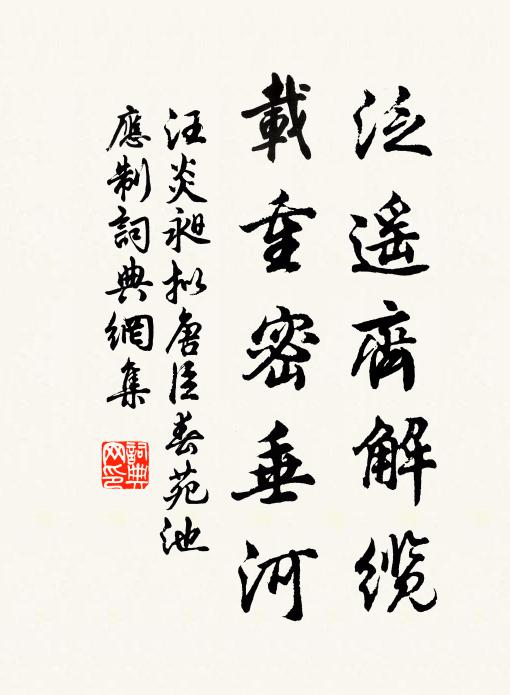 泛遥齊解纜
載重密垂河
汪炎昶拟唐臣春苑池
應制詞典網集
詞典網印